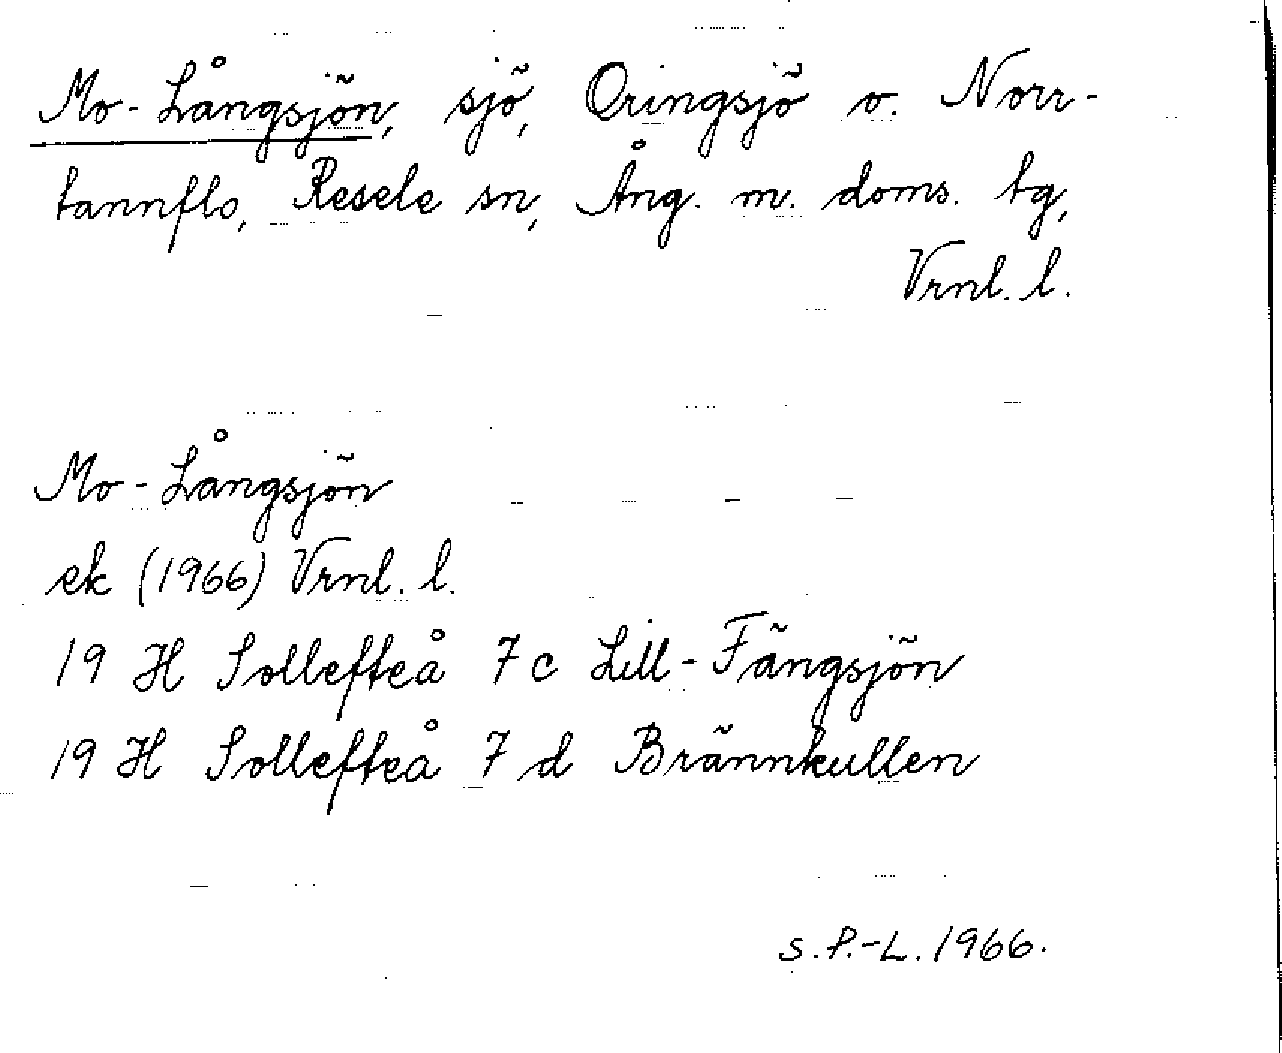 Mo-Långsjön, sjö, Oringsjö o. Norr-
tannflo, Resele sn, Ång. m. doms. tg,
Vrnl. l.
Mo-Långsjön
ek (1966) Vrnl. l.
19 H Sollefteå 7 c Lill-Fängsjön
19 H Sollefteå 7 d Brännkullen
S.P.-L. 1966.